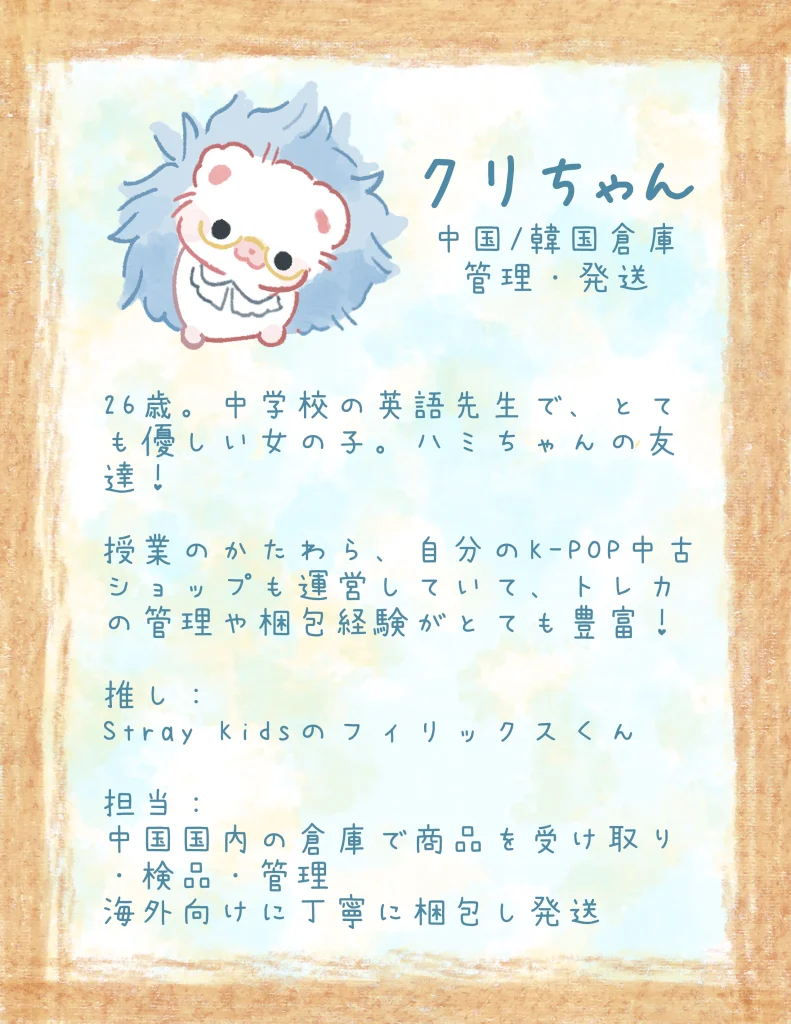 クリちゃん
中国/韓国倉庫
管理・発送
26歳。中学校の英語先生で、とて
も優しい女の子。ハミちゃんの友
達！
授業のかたわら、自分のK-POP中古
ショップも運営していて、トレカ
の管理や梱包経験がとても豊富！
推し：
Stray Kidsのフィリックスくん
担当：
中国国内の倉庫で商品を受け取り
・検品・管理
海外向けに丁寧に梱包し発送